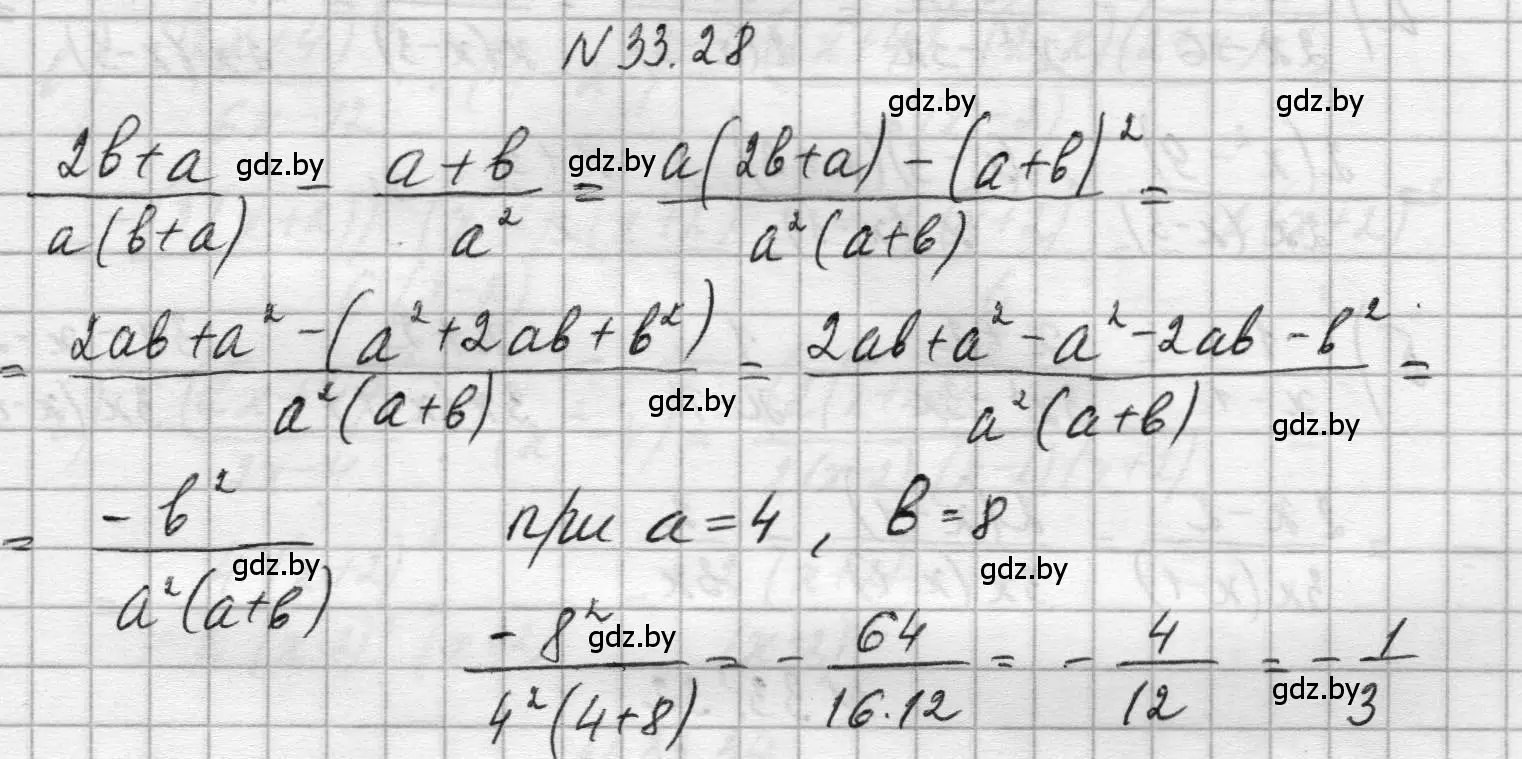 N 33.28
gdz.by gdz.by
(2b+a)/(a(b+a)) gdz.by - (a+b)/a² gdz.by = (a(2b+a)-(a+b)²)/(a²(a+b)) =
= (2ab+a²-(a²+2ab+b²))/(a²(a+b)) gdz.by = (2ab+a²-a²-2ab-b²)/(a²(a+b)) gdz.by =
= (-b²)/(a²(a+b)) gdz.by при a=4, b=8
gdz.by
(-8²)/(4²(4+8)) gdz.by = - 64/(16·12) = - 4/12 = - 1/3 gdz.by